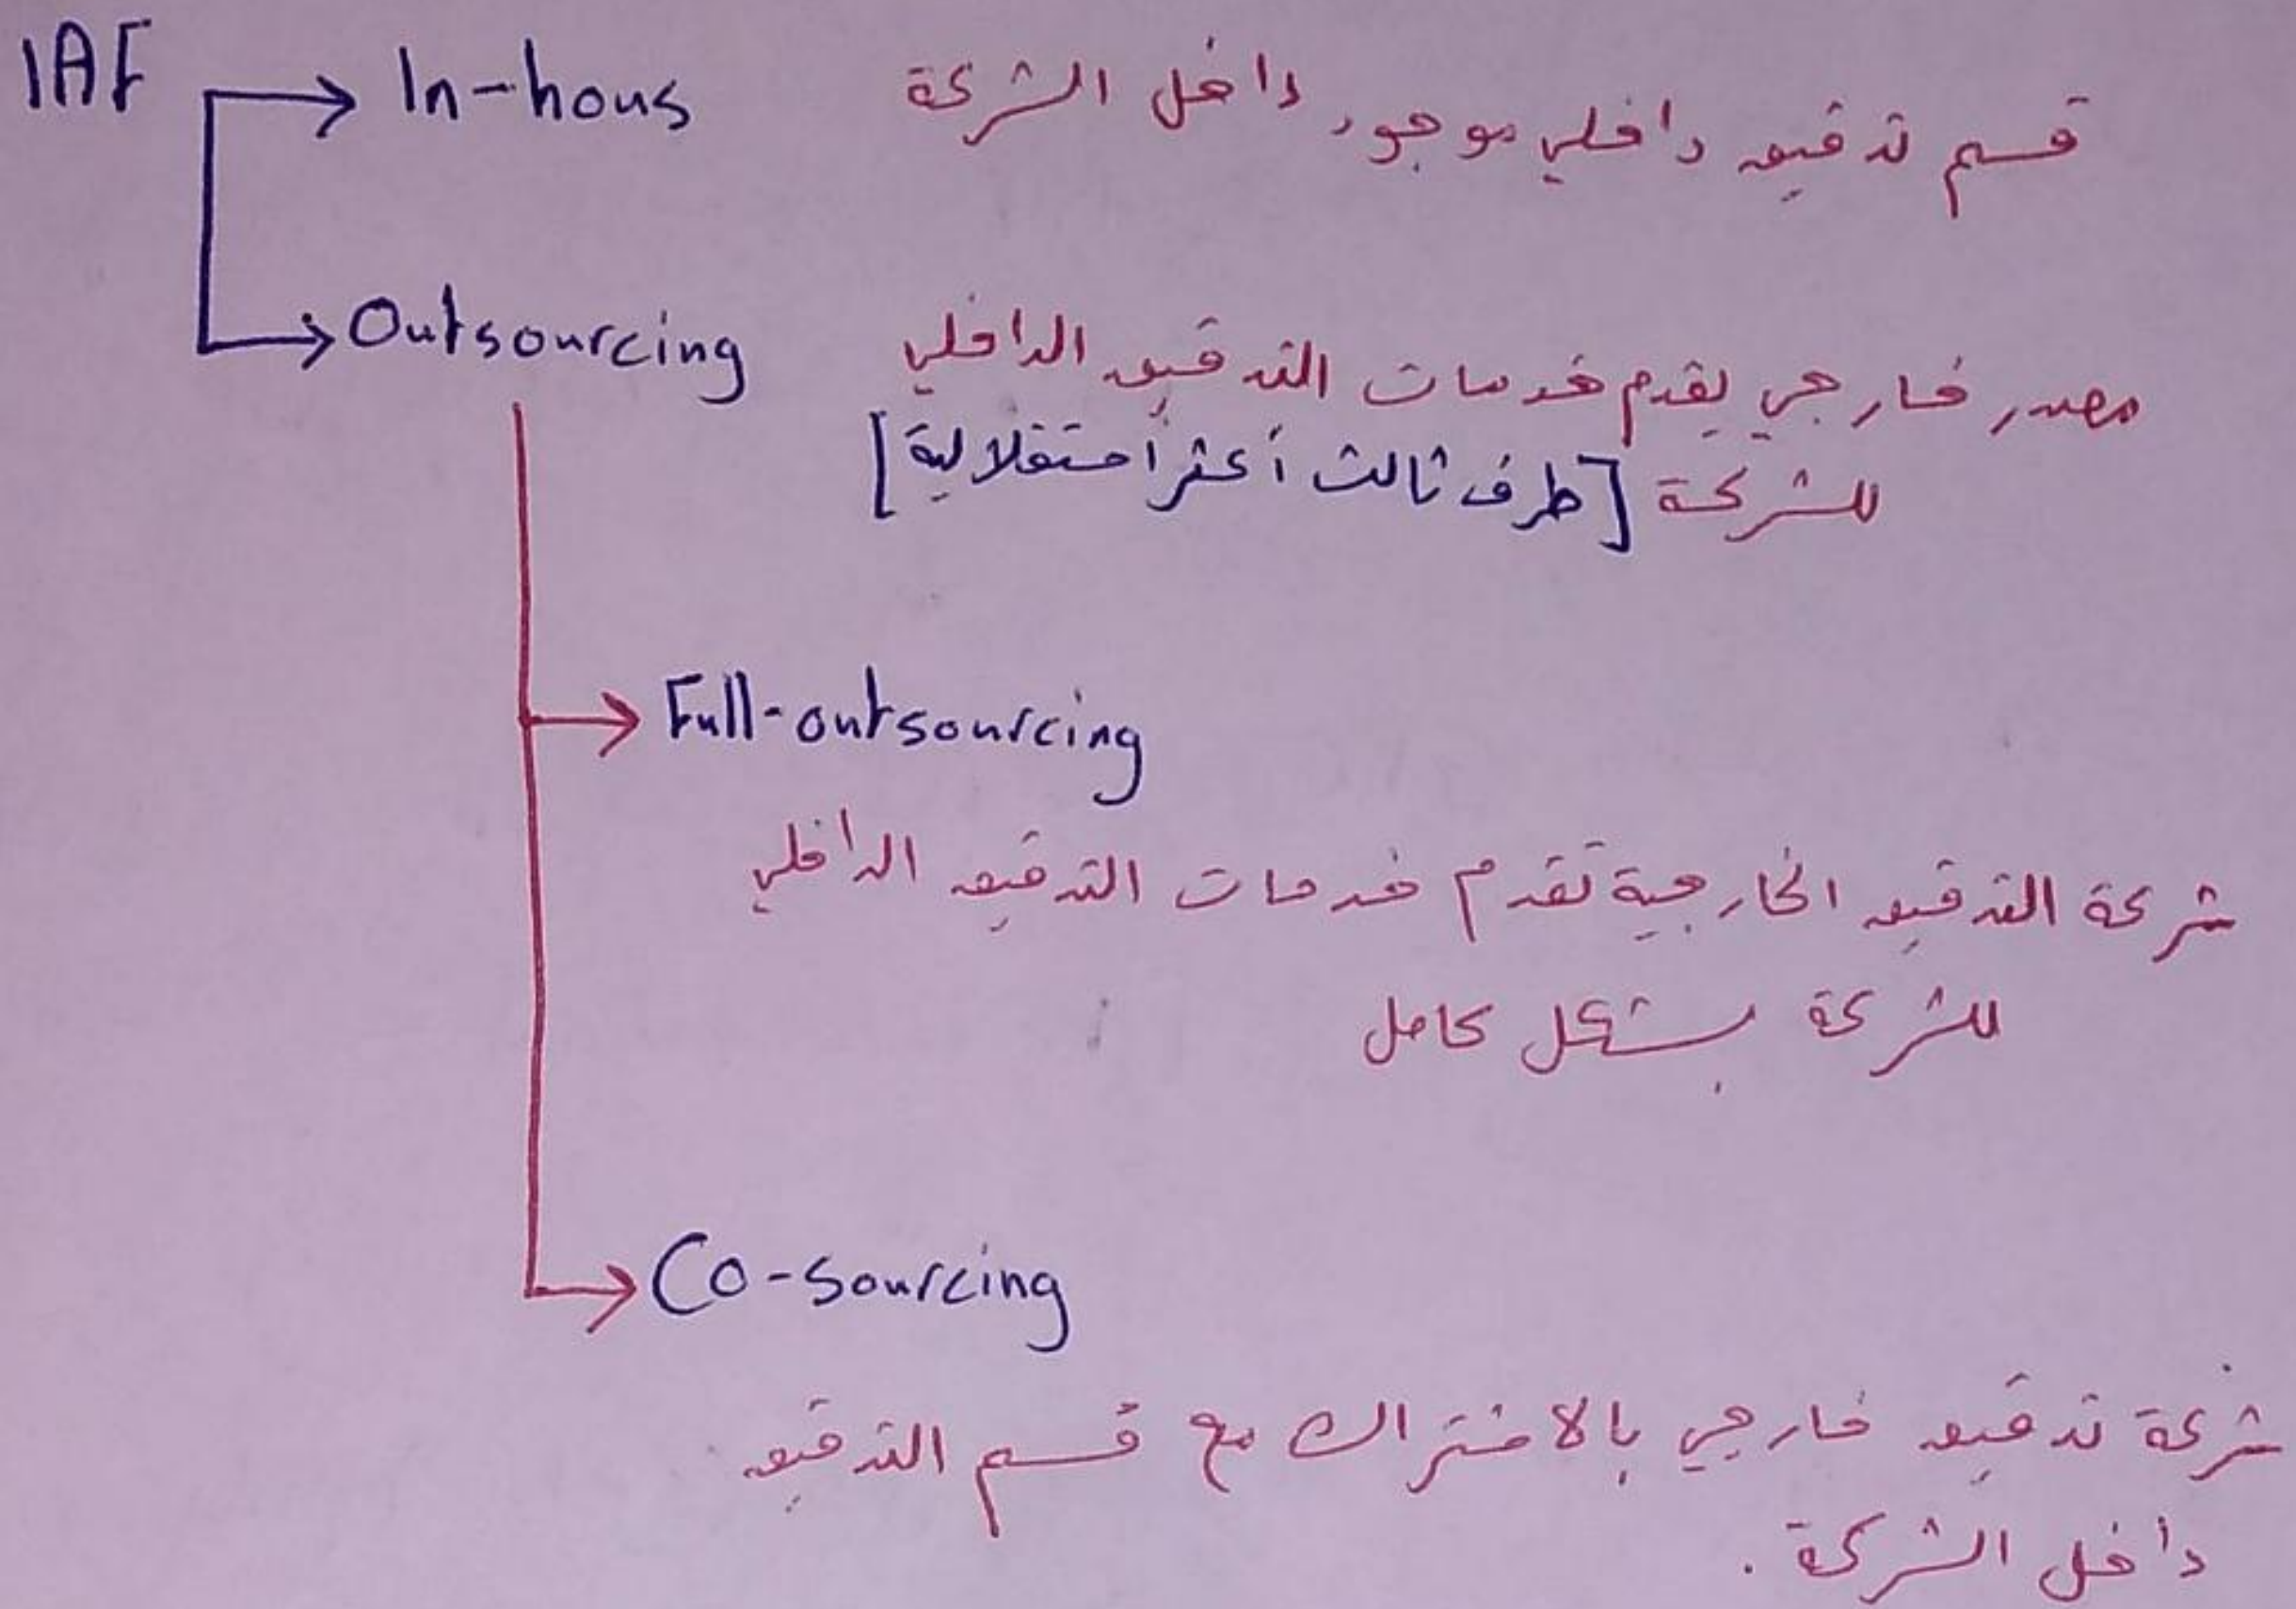 IAF
In-hous
قسم تدقيق داخلي موجود داخل الشركة
Outsourcing
مصدر خارجي يقدم خدمات التدقيق الداخلي
للشركة [طرف ثالث أكثر استقلالية]
Full-outsourcing
شركة التدقيق الخارجية تقدم خدمات التدقيق الداخلي
للشركة بشكل كامل
Co-sourcing
شركة تدقيق خارجي بالاشتراك مع قسم التدقيق
داخل الشركة.